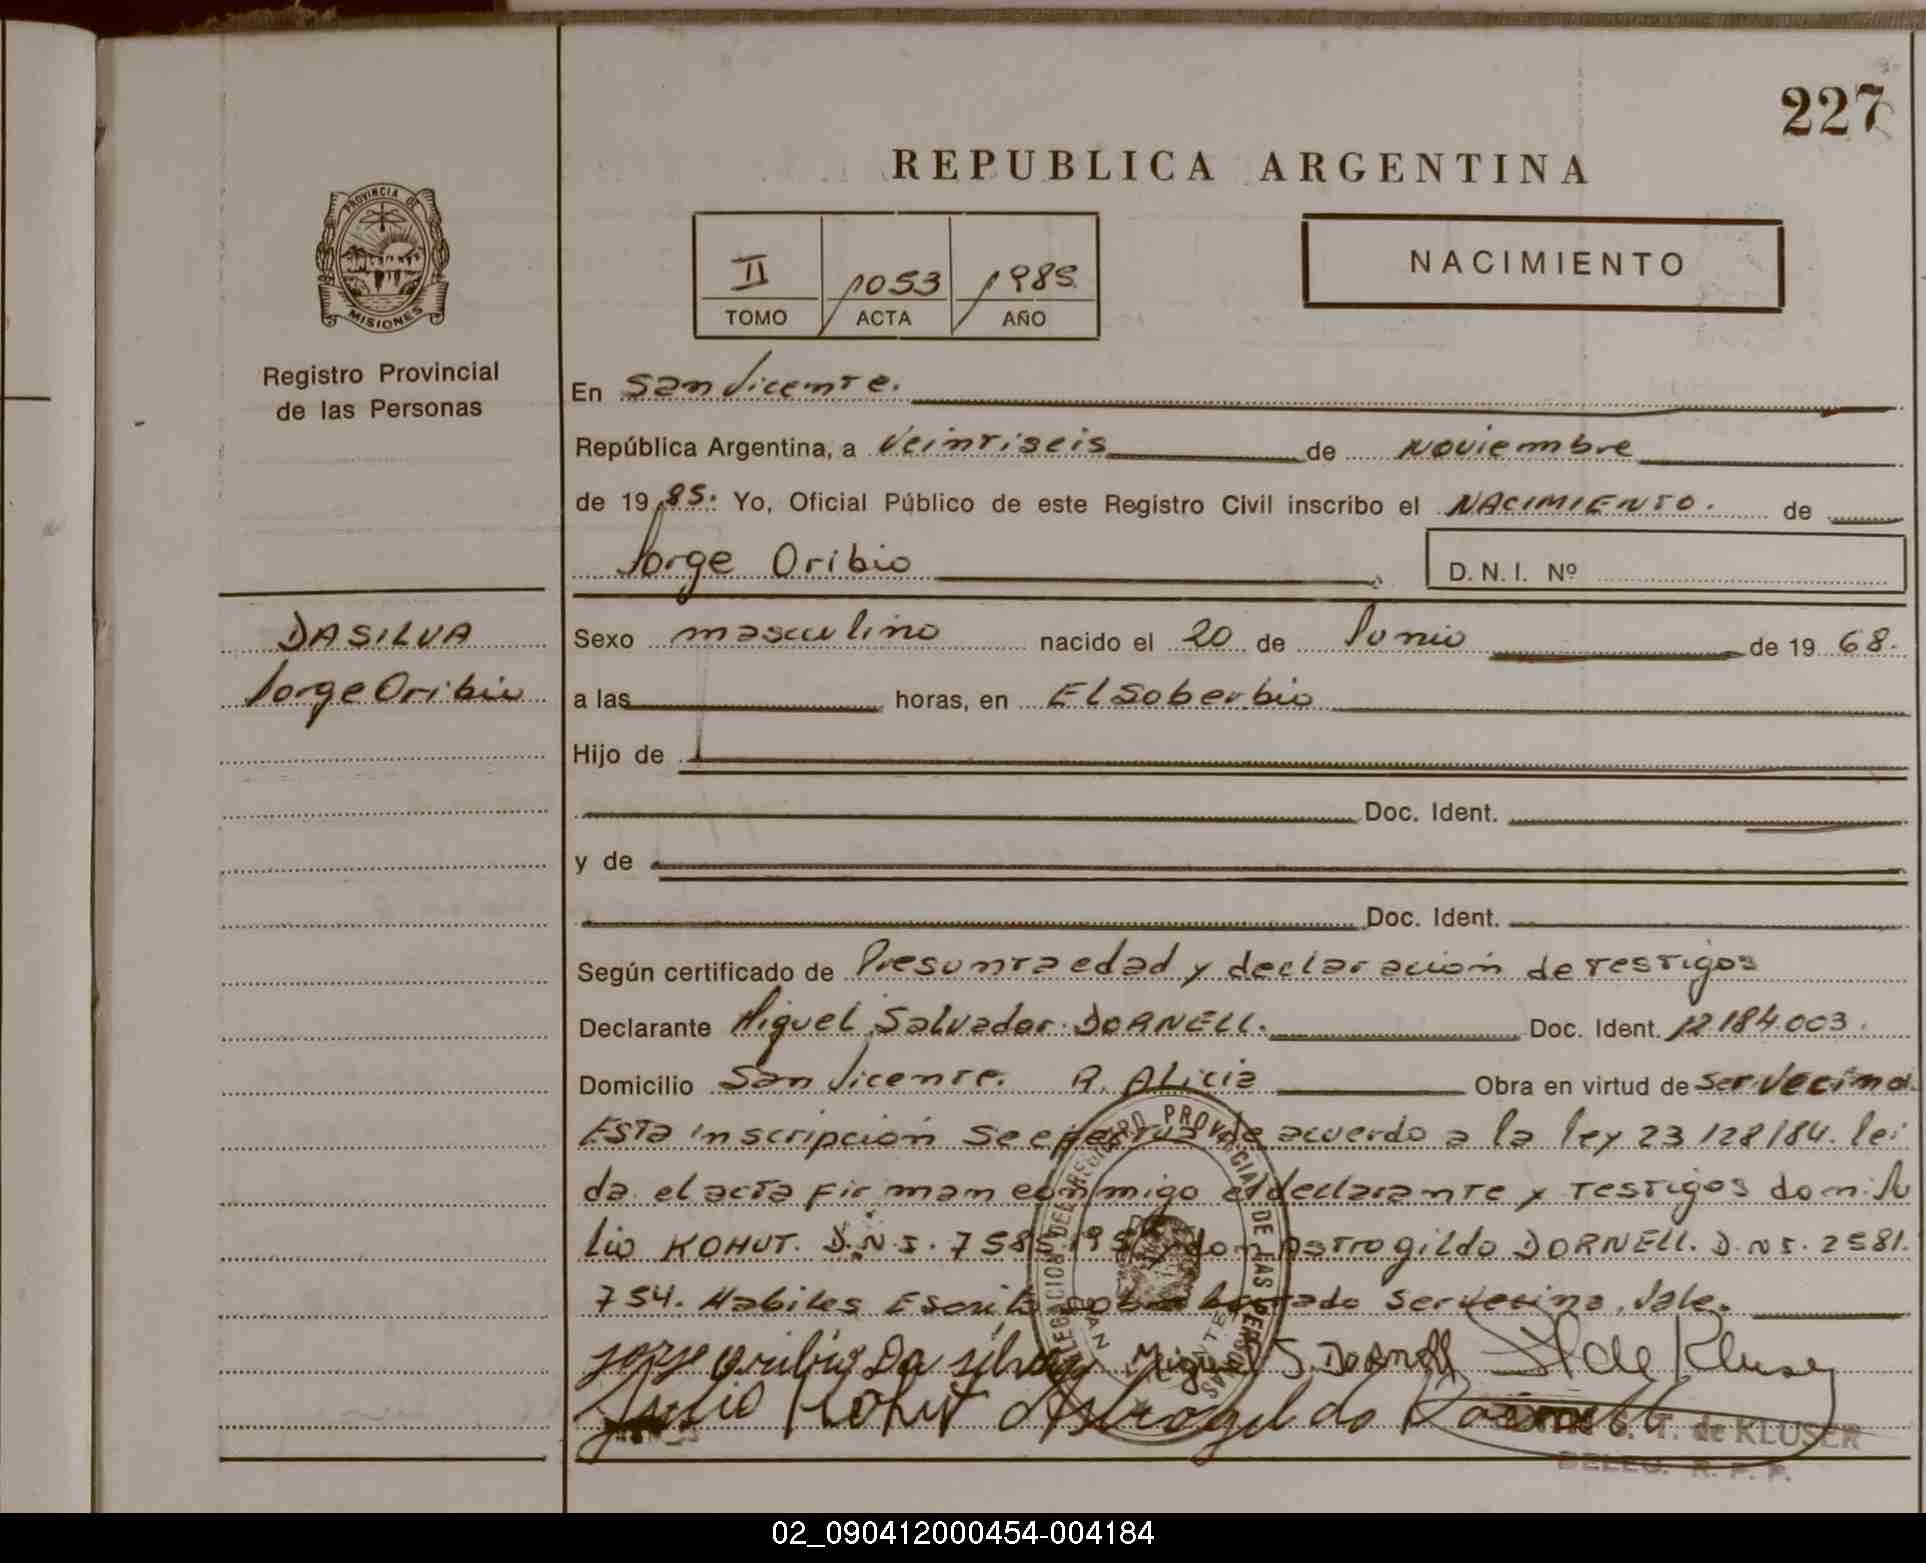 227
REPUBLICA ARGENTINA
PROVINCIA DE
MISIONES
II 1053 1985
TOMO ACTA AÑO
NACIMIENTO
Registro Provincial
de las Personas
En San Vicente.
República Argentina, a Veintiseis de Noviembre
de 19 85. Yo, Oficial Público de este Registro Civil inscribo el NACIMIENTO. de
Jorge Oribio
D. N. I. Nº
DASILVA
Jorge Oribio
Sexo masculino nacido el 20 de Junio de 19 68.
a las horas, en El Soberbio
Hijo de
Doc. Ident.
y de
Doc. Ident.
Según certificado de Presunta edad y declaración de testigos
Declarante Miguel Salvador DORNELL. Doc. Ident. 12184.003.
Domicilio San Vicente. P. Alicia Obra en virtud de ser vecino.
Esta inscripción se efectua de acuerdo a la ley 23128/84. lei
da el acta firman conmigo el declarante y testigos don Ju
lio KOHUT. D.N.I. don Astrogildo DORNELL. D.N.I. 2581.
754. Habiles Escrito sobre borrado ser vecino. Vale.
Jorge Oribio Da silva Miguel S. DORNELL de Kluser
Julio Kohut Astrogildo Dornell
T. de KLUSER
DELEG. R. P. P.
DELEGACION DEL REGISTRO PROVINCIAL DE LAS PERSONAS
SAN VICENTE
02_090412000454-004184